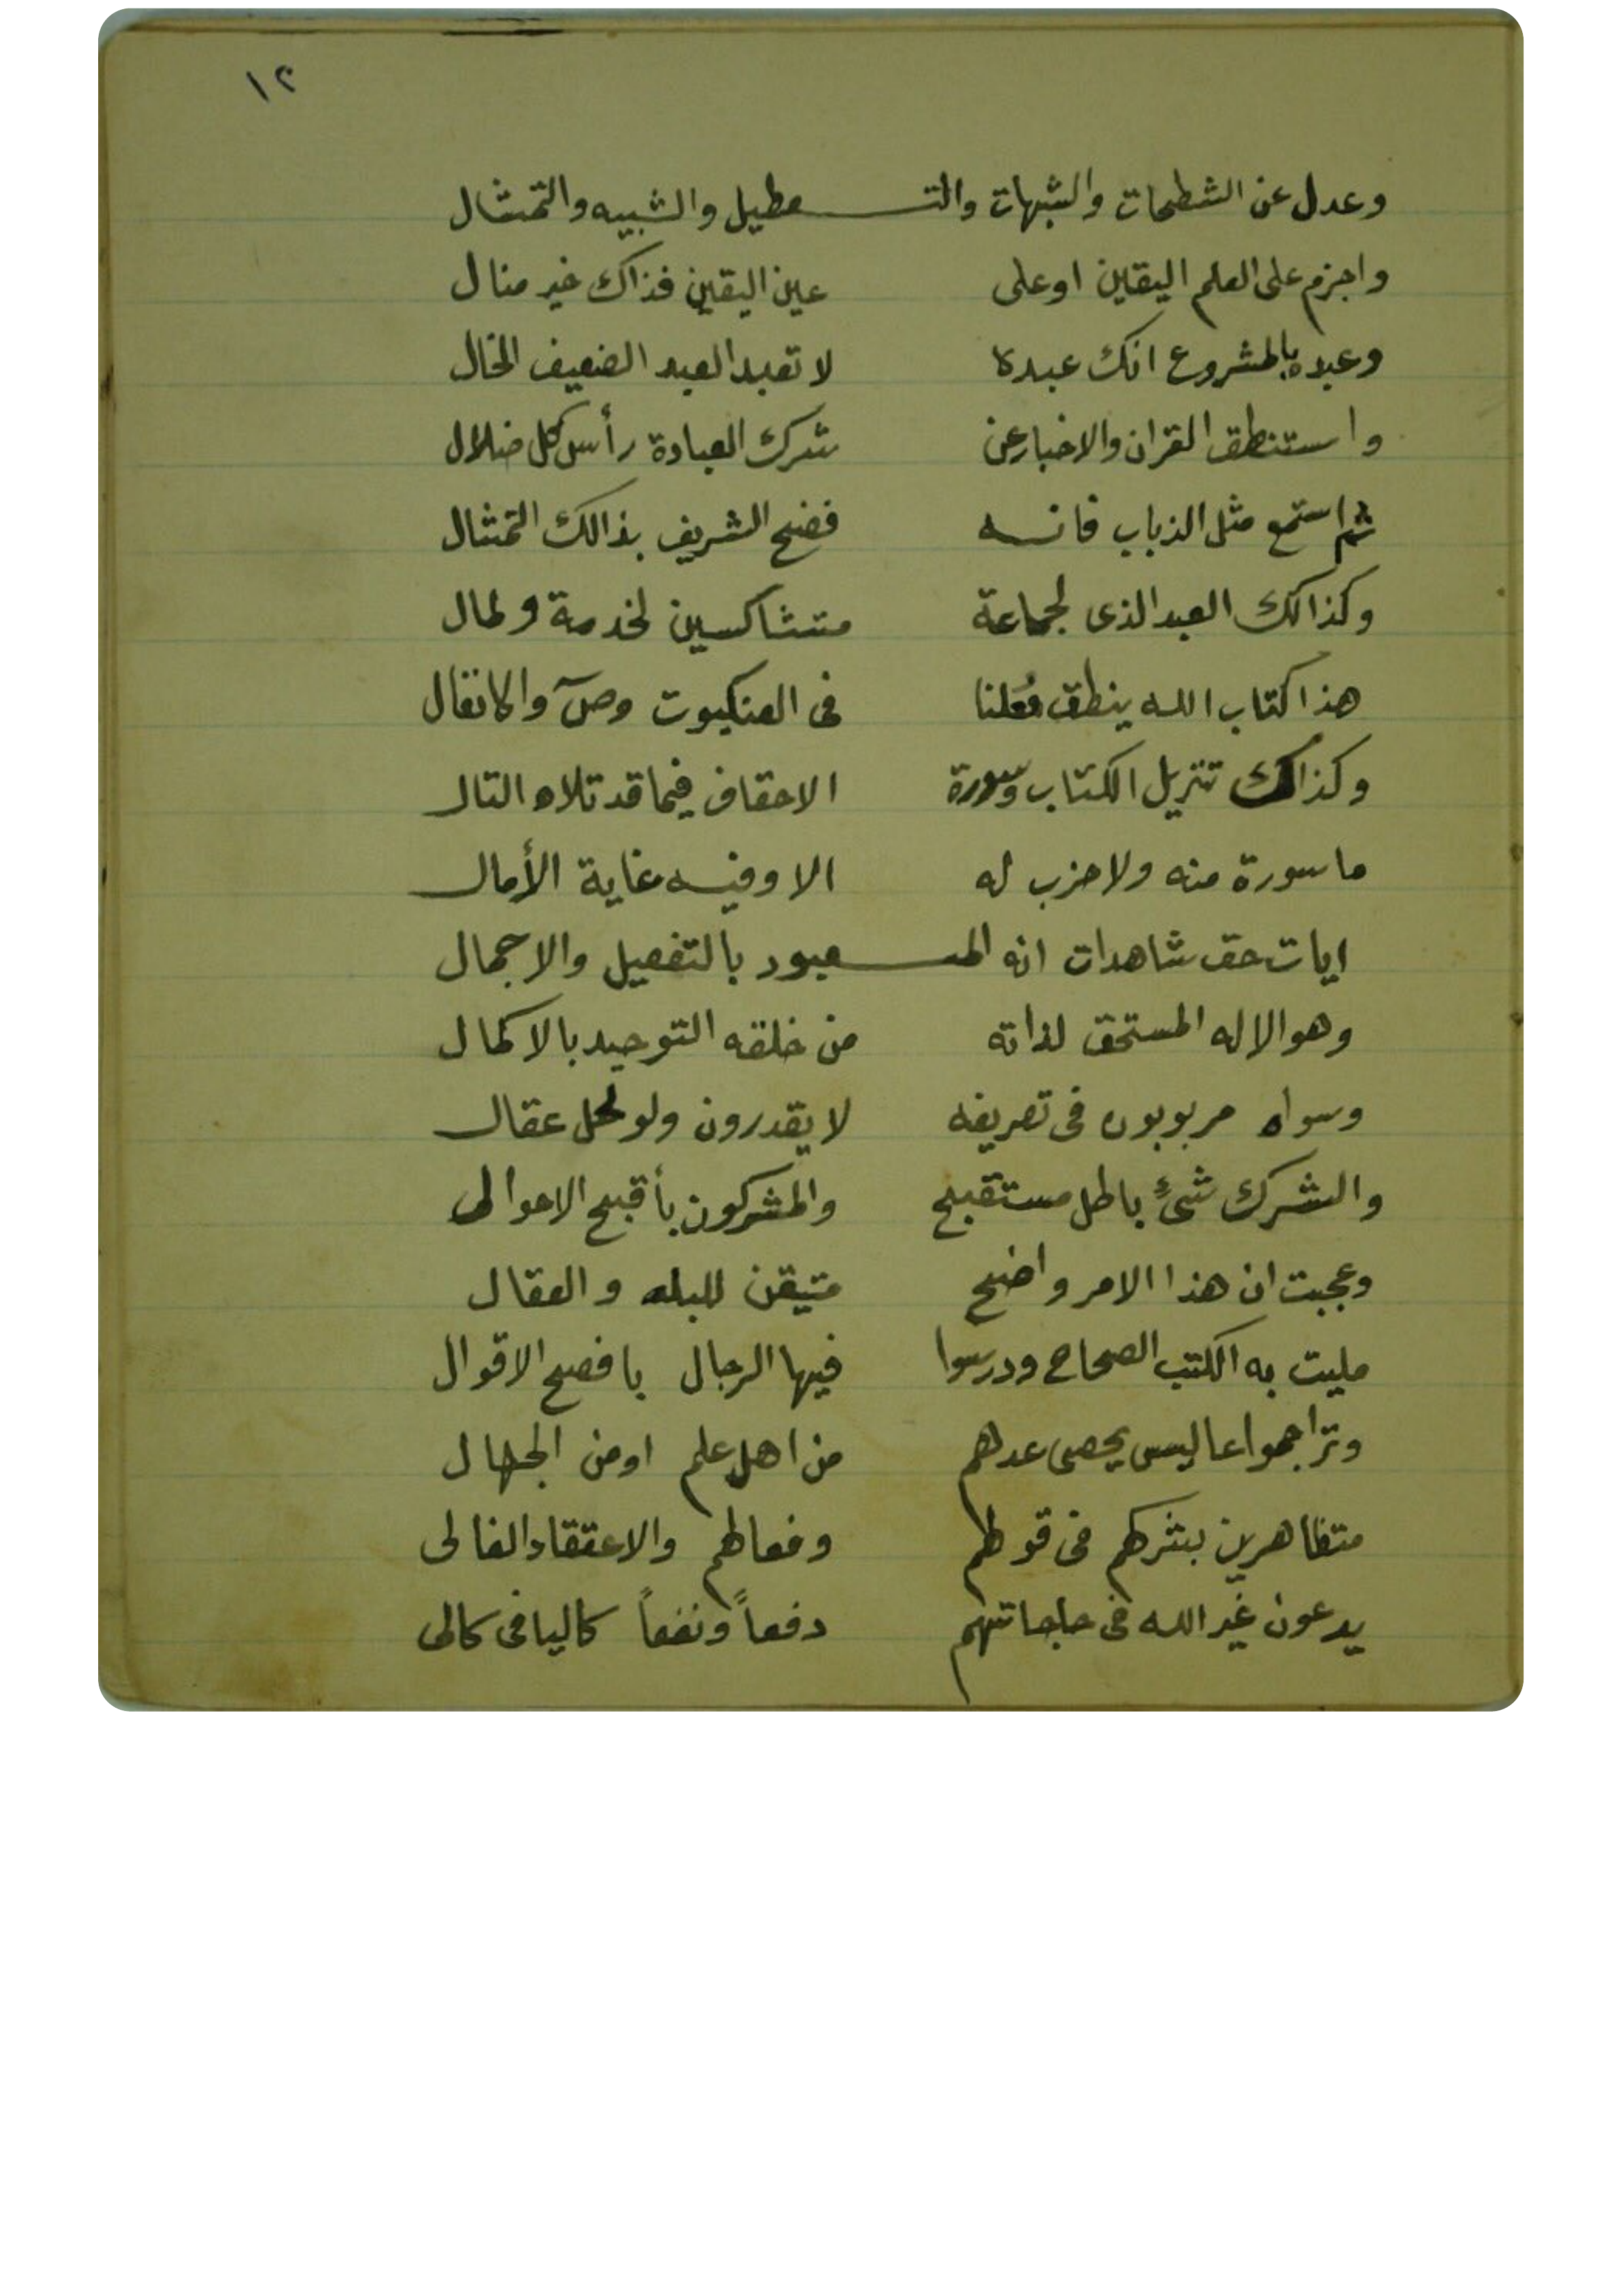 ١٢
وعدل عن الشطحات والشبهات والتـــعطيل والشبيه والتمثال
واجزم على العلم اليقين او على عين اليقين فذاك خير منال
وعبده بالمشروع انك عبده لا تعبد العبد الضعيف الخال
واستنطق القران والاخبار عن شرك العبادة رأس كل ضلال
ثم استمع مثل الذباب فانه فضح الشريف بذالك التمثال
وكذالك العبد الذى لجماعة متشاكسين لخدمة ولمال
هذا كتاب الله ينطق مُعلنا فى العنكبوت وصٓ والانفال
وكذاك تنزيل الكتاب وسورة الاحقاف فيما قد تلاه التال
ما سورة منه ولا حزب له الا وفيه غاية الأمال
ايات حق شاهدات انه المـــعبود بالتفصيل والاجمال
وهو الاله المستحق لذاته من خلقه التوحيد بالاكمال
وسواه مربوبون فى تصريفه لا يقدرون ولو لحل عقال
والشرك شئٌ باطل مستقبح والمشركون بأقبح الاحوالى
وعجبت ان هذا الامر واضح متيقن للبله والعقال
مليت به الكتب الصحاح ودرسوا فيها الرجال بافصح الاقوال
وتراجموا عا ليس يحصى عدهم من اهل علم او من الجهال
متظاهرين بشركهم فى قولهم وفعالهم والاعتقاد الغالى
يدعون غير الله فى حاجاتهم دفعاً ونفعاً كاليافى كالى